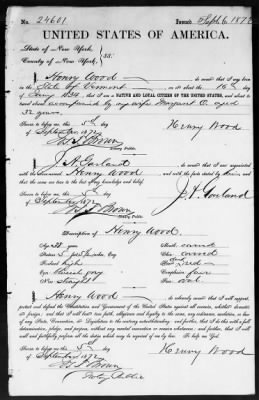 No. 24601 Issued Sept 6, 1872
UNITED STATES OF AMERICA.
State of New York,
County of New York, } ss:
I Henry Wood do swear that I was born
in the State of Vermont on or about the 16th day
of 1834 that I am a NATIVE AND LOYAL CITIZEN OF THE UNITED STATES, and about to
travel abroad accompanied by my wife Margaret aged
32 years.
Sworn to before me, this 5th day
of September 1872 Henry Wood
Notary Public.
I J. A. Garland do swear that I am acquainted
with the above-named Henry Wood and with the facts
above stated by him, and that the same are true to the best of my knowledge and belief.
Sworn to before me, this 5th day
of September 1872 J. A. Garland
Notary Public.
Description of Henry Wood
Age: 38 years Mouth: curved
Stature: 5 feet inches, Eng. Chin: round
Forehead: high Hair:
Eyes: gray Complexion: fair
Nose: straight Face: oval
I Henry Wood do solemnly swear that I will support,
protect and defend the Constitution and Government of the United States against all enemies, whether domestic
or foreign; and that I will bear true faith, allegiance and loyalty to the same, any ordinance, resolution or law
of any State, Convention, or Legislature to the contrary notwithstanding; and further, that I do this with a full
determination, pledge, and purpose, without any mental reservation or evasion whatsoever; and further, that I will
well and faithfully perform all the duties which may be required of me by law. So help me God.
Sworn to before me, this 5th day
of September 1872 Henry Wood
Notary Public